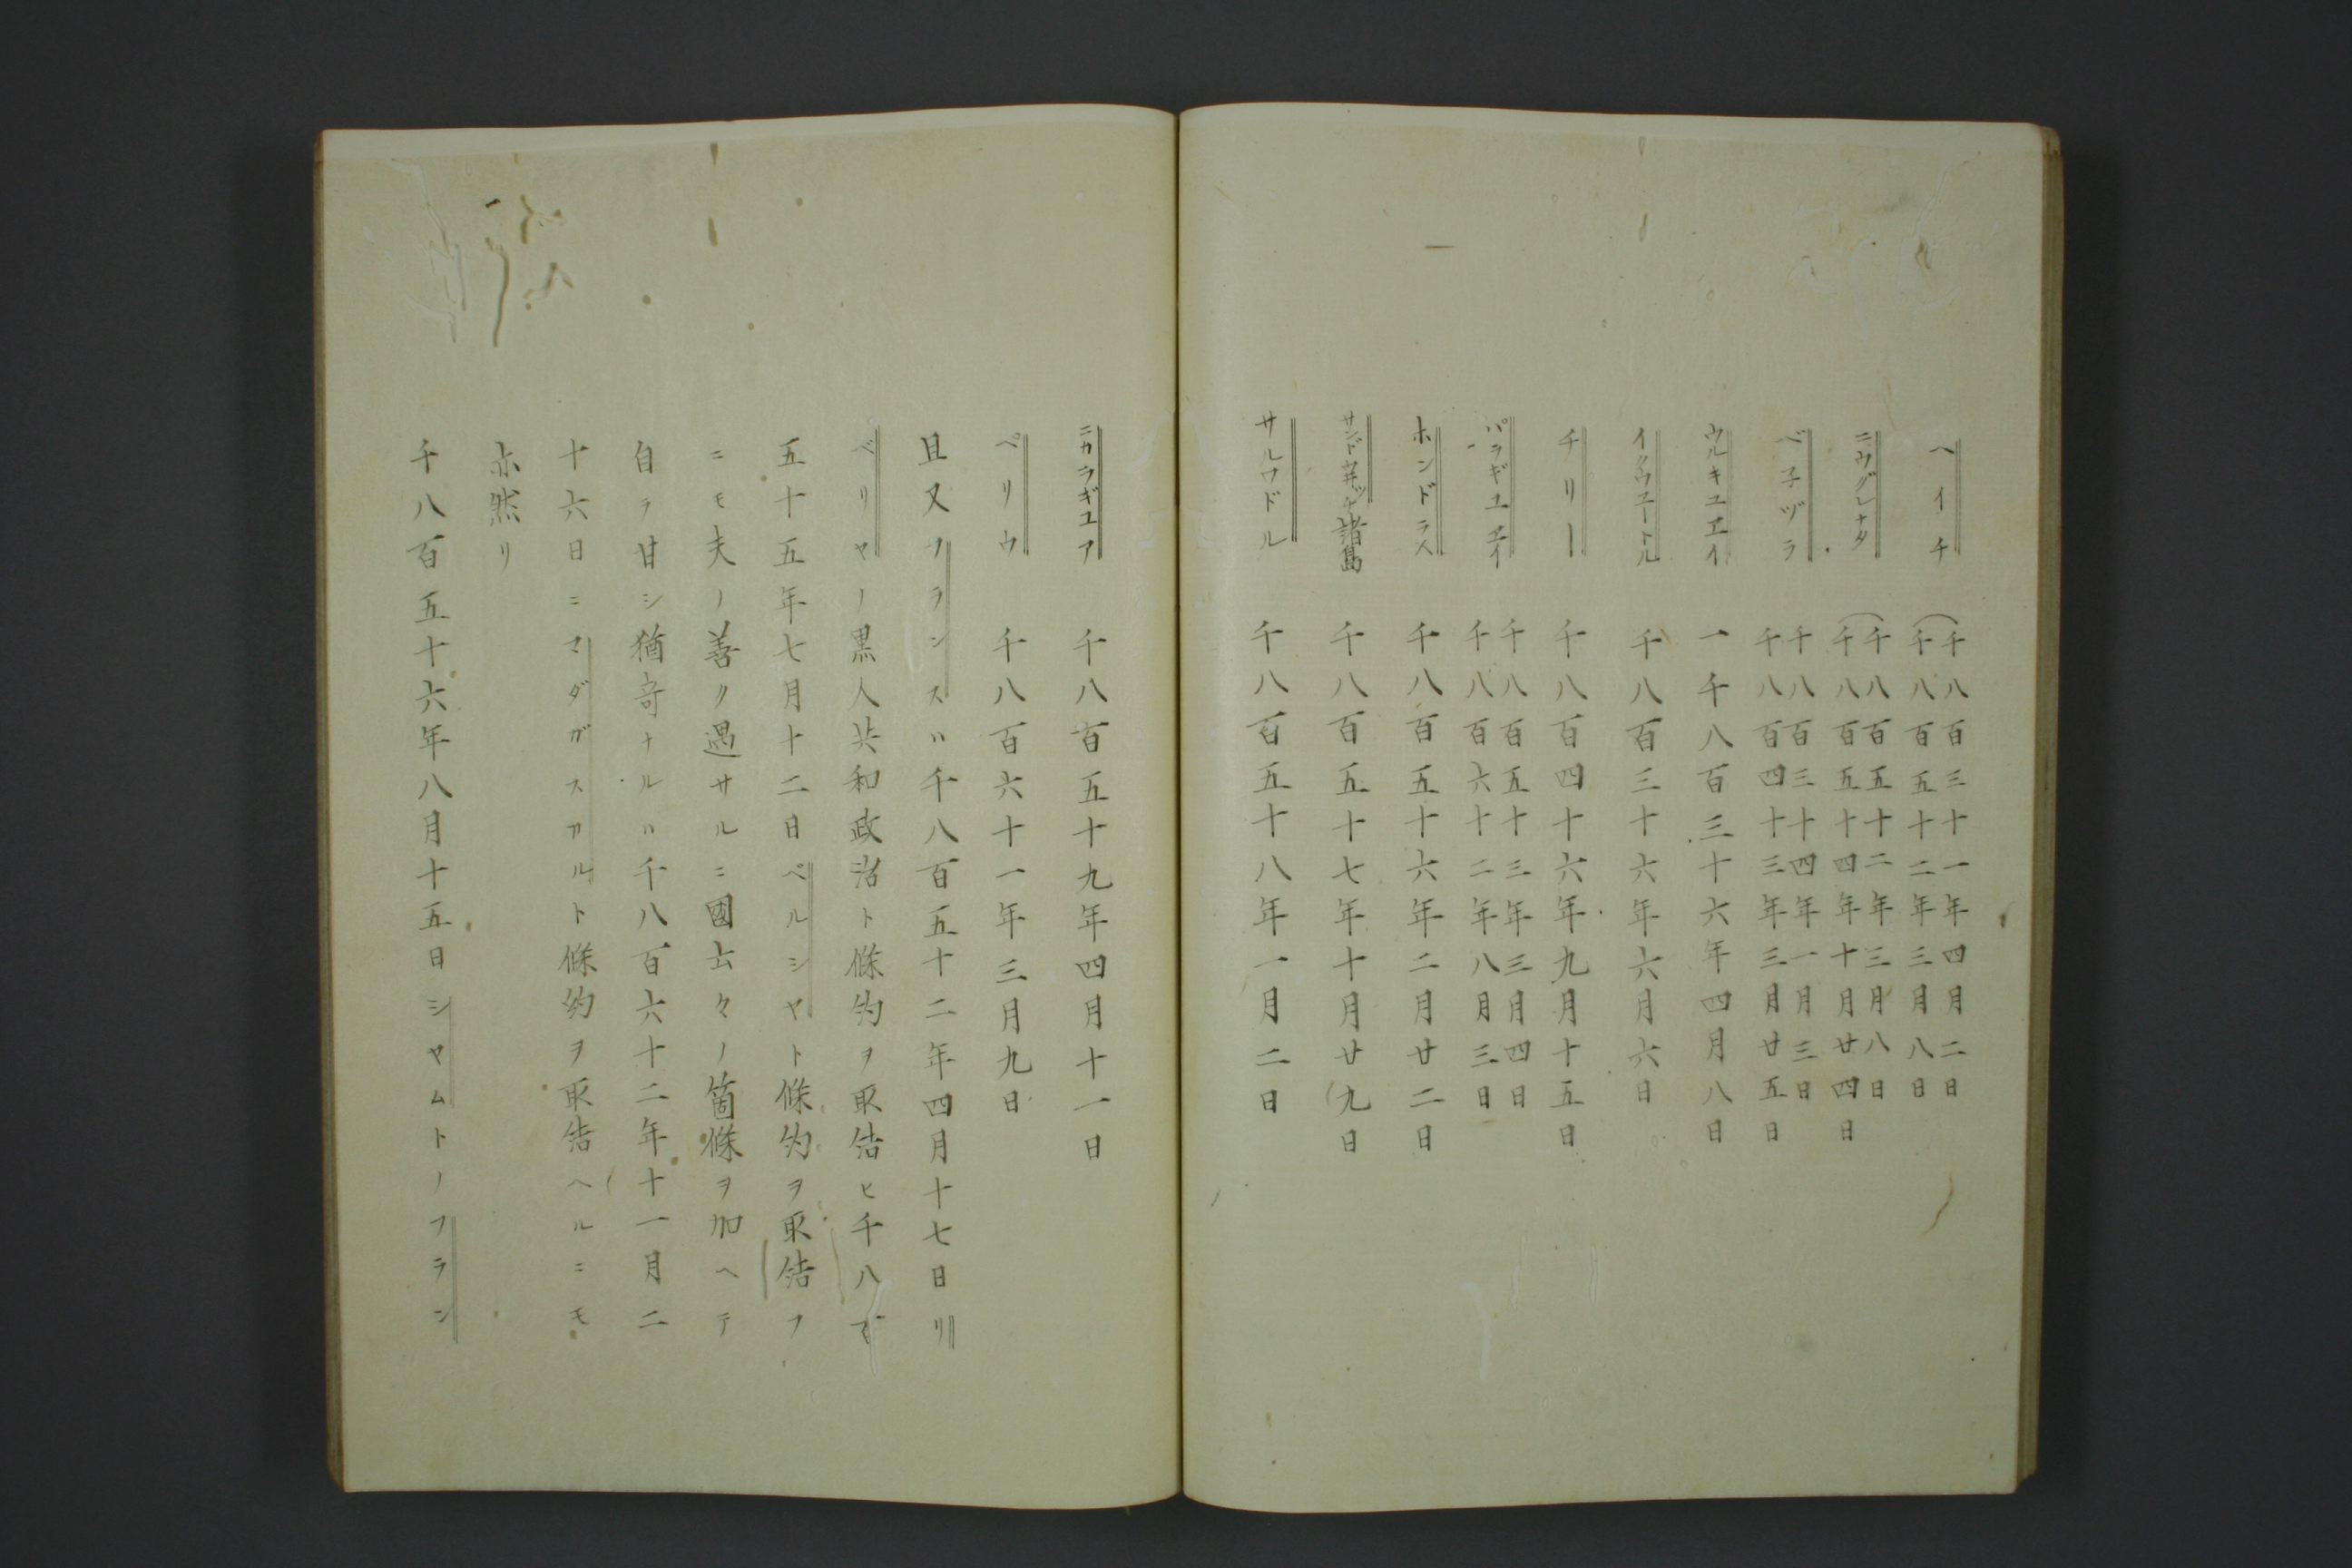 ヘイチ 千八百三十一年四月二日
千八百五十二年三月八日
ニウグレナダ 千八百五十二年三月八日
千八百五十四年十月廿四日
ベ子ヅラ 千八百三十四年一月三日
千八百四十三年三月廿五日
ウルキユヱイ 一千八百三十六年四月八日
イクウユートル 千八百三十六年六月六日
チリー 千八百四十六年九月十五日
パラギユヱイ 千八百五十三年三月四日
千八百六十二年八月三日
ホンドラス 千八百五十六年二月廿二日
サンドウ井ッチ諸島 千八百五十七年十月廿九日
サルワドル 千八百五十八年一月二日
ニカラギユア 千八百五十九年四月十一日
ペリウ 千八百六十一年三月九日
且又フランスハ千八百五十二年四月十七日リ
ベリヤノ黒人共和政治ト條約ヲ取結ヒ千八百
五十五年七月十二日ペルシヤト條約ヲ取結フ
ニモ夫ノ善ク遇サルニ國云々ノ箇條ヲ加ヘテ
自ラ甘シ猶竒ナルハ千八百六十二年十一月二
十六日ニマダガスカルト條約ヲ取結ヘルニモ
亦然リ
千八百五十六年八月十五日シヤムトノフラン